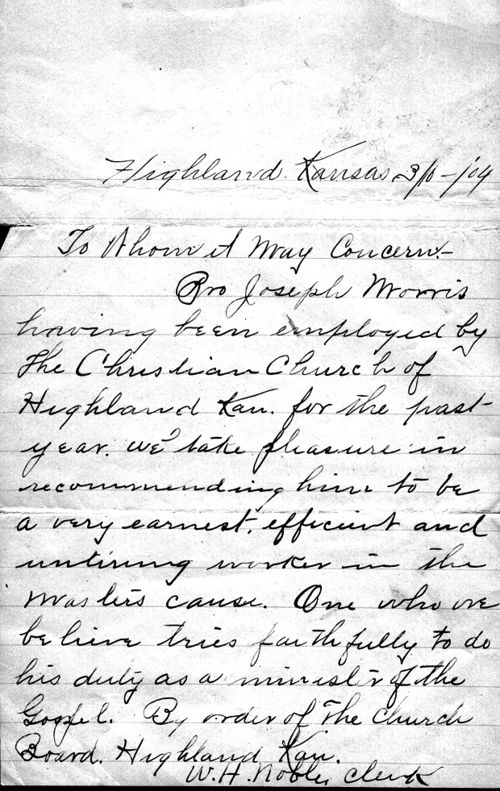 Highland. Kansas 3/10-/'04
To Whom it May Concern:-
Bro Joseph Morris
having been employed by
the Christian Church of
Highland Kan. for the past
year. we take pleasure in
recommending him to be
a very earnest, efficient and
untiring worker in the
Masters cause. One who we
believe tries faithfully to do
his duty as a minister of the
Gospel. By order of the Church
Board. Highland Kan.
W. H. Nobles Clerk